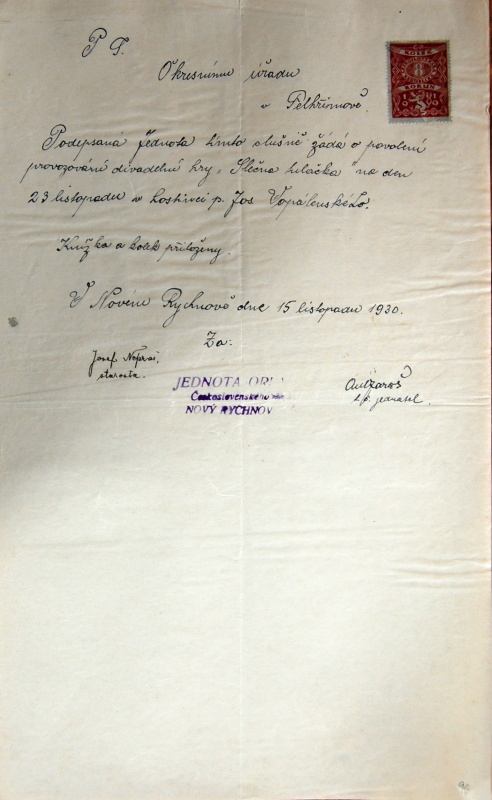 P. T.
Okresnímu úřadu
v Pelhřimově.
Podepsaná Jednota tímto slušně žádá o povolení
provozování divadelní hry „Slečna
23 listopadu v hostinci p. Jos. Topálenského.
Knížka a kolek přiloženy.
V Novém Rychnově dne 15 listopadu 1930.
Za:
Josef
starosta.
jednatel.
JEDNOTA OR
Československého
NOVÝ RYCHNOV
KOLEK
8
KORUN